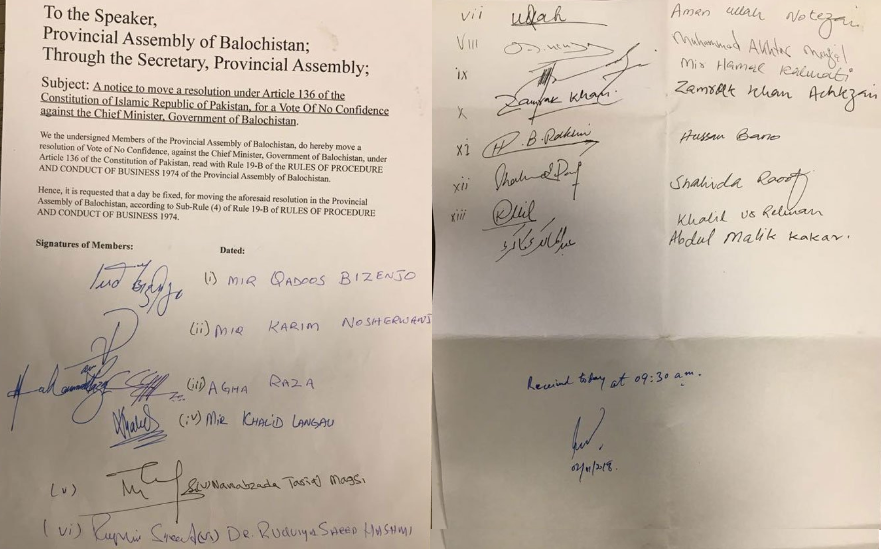 To the Speaker,
Provincial Assembly of Balochistan;
Through the Secretary, Provincial Assembly;
Subject: A notice to move a resolution under Article 136 of the
Constitution of Islamic Republic of Pakistan, for a Vote Of No Confidence
against the Chief Minister, Government of Balochistan.
We the undersigned Members of the Provincial Assembly of Balochistan, do hereby move a
resolution of Vote of No Confidence, against the Chief Minister, Government of Balochistan, under
Article 136 of the Constitution of Pakistan, read with Rule 19-B of the RULES OF PROCEDURE
AND CONDUCT OF BUSINESS 1974 of the Provincial Assembly of Balochistan.
Hence, it is requested that a day be fixed, for moving the aforesaid resolution in the Provincial
Assembly of Balochistan, according to Sub-Rule (4) of Rule 19-B of RULES OF PROCEDURE
AND CONDUCT OF BUSINESS 1974.
Signatures of Members: Dated:
(i) MIR QADOOS BIZENJO
(ii) MIR KARIM NOSHERWANI
(iii) AGHA RAZA
Khalid (iv) MIR KHALID LANGAU
(v) Nawabzada Tariq Magsi
(vi) DR. RUQUIYA SAEED HASHMI
vii Aman ullah Notezai
VIII Muhammad Akhtar Mengal
ix Mir Hamal Kalmati
x Zamrak Khan Zamrak Khan Achkzai
xi H. B. Rakhni Hussan Bano
xii Shahida Rauf Shahida Raoof
xiii Khalil ur Rehman
Abdul Malik Kakar.
Received today at 09:30 am.